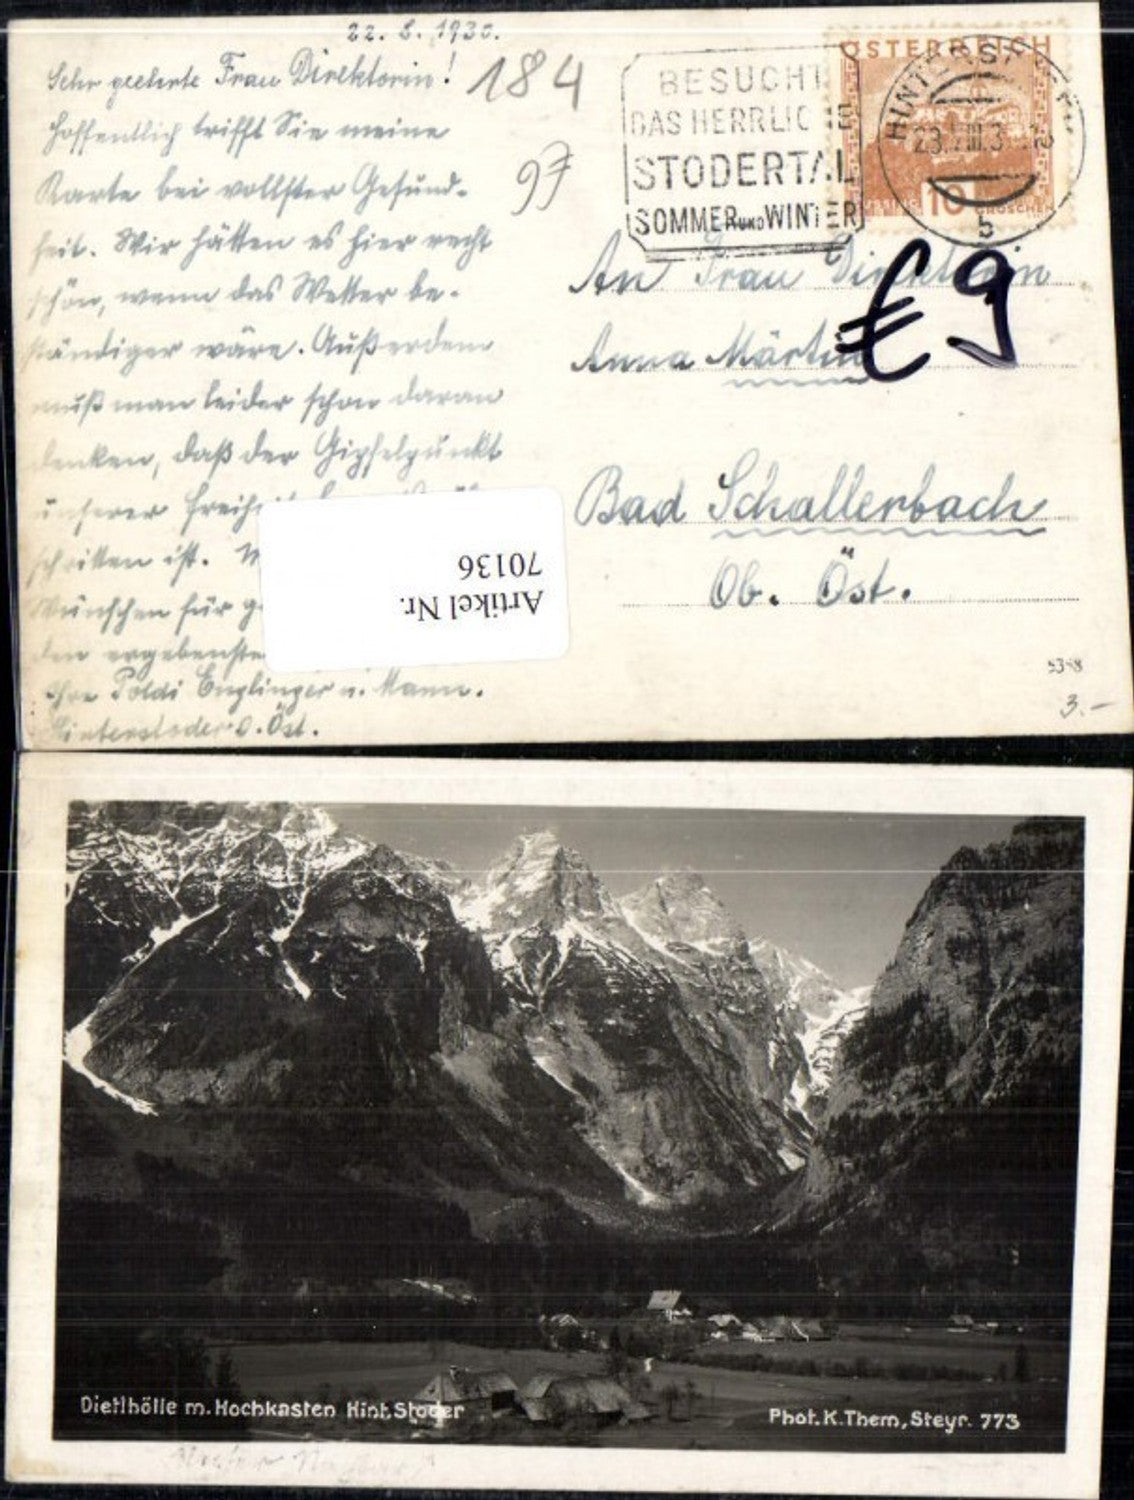 22. 8. 1930.
Sehr geehrte Frau Direktorin!
Hoffentlich trifft Sie meine
Karte bei vollster Gesund-
heit. Wir hätten es hier recht
schön, wenn das Wetter be-
ständiger wäre. Außerdem
muß man leider schon daran
denken, daß der Gipfelpunkt
unserer
schritten ist.
Wünschen für
den ergebenste
Ihre Poldi Englinger u. Mann.
Hinterstoder O. Öst.
184
97
BESUCHT
DAS HERRLICHE
STODERTAL
SOMMER UND WINTER
ÖSTERREICH
10
GROSCHEN
b
An Frau Direktorin
Anna Märtin
€9
Bad Schallerbach
Ob. Öst.
Artikel Nr.
70136
3.-
Dietlhölle m. Hochkasten Hint. Stoder
Phot. K. Them, Steyr. 773